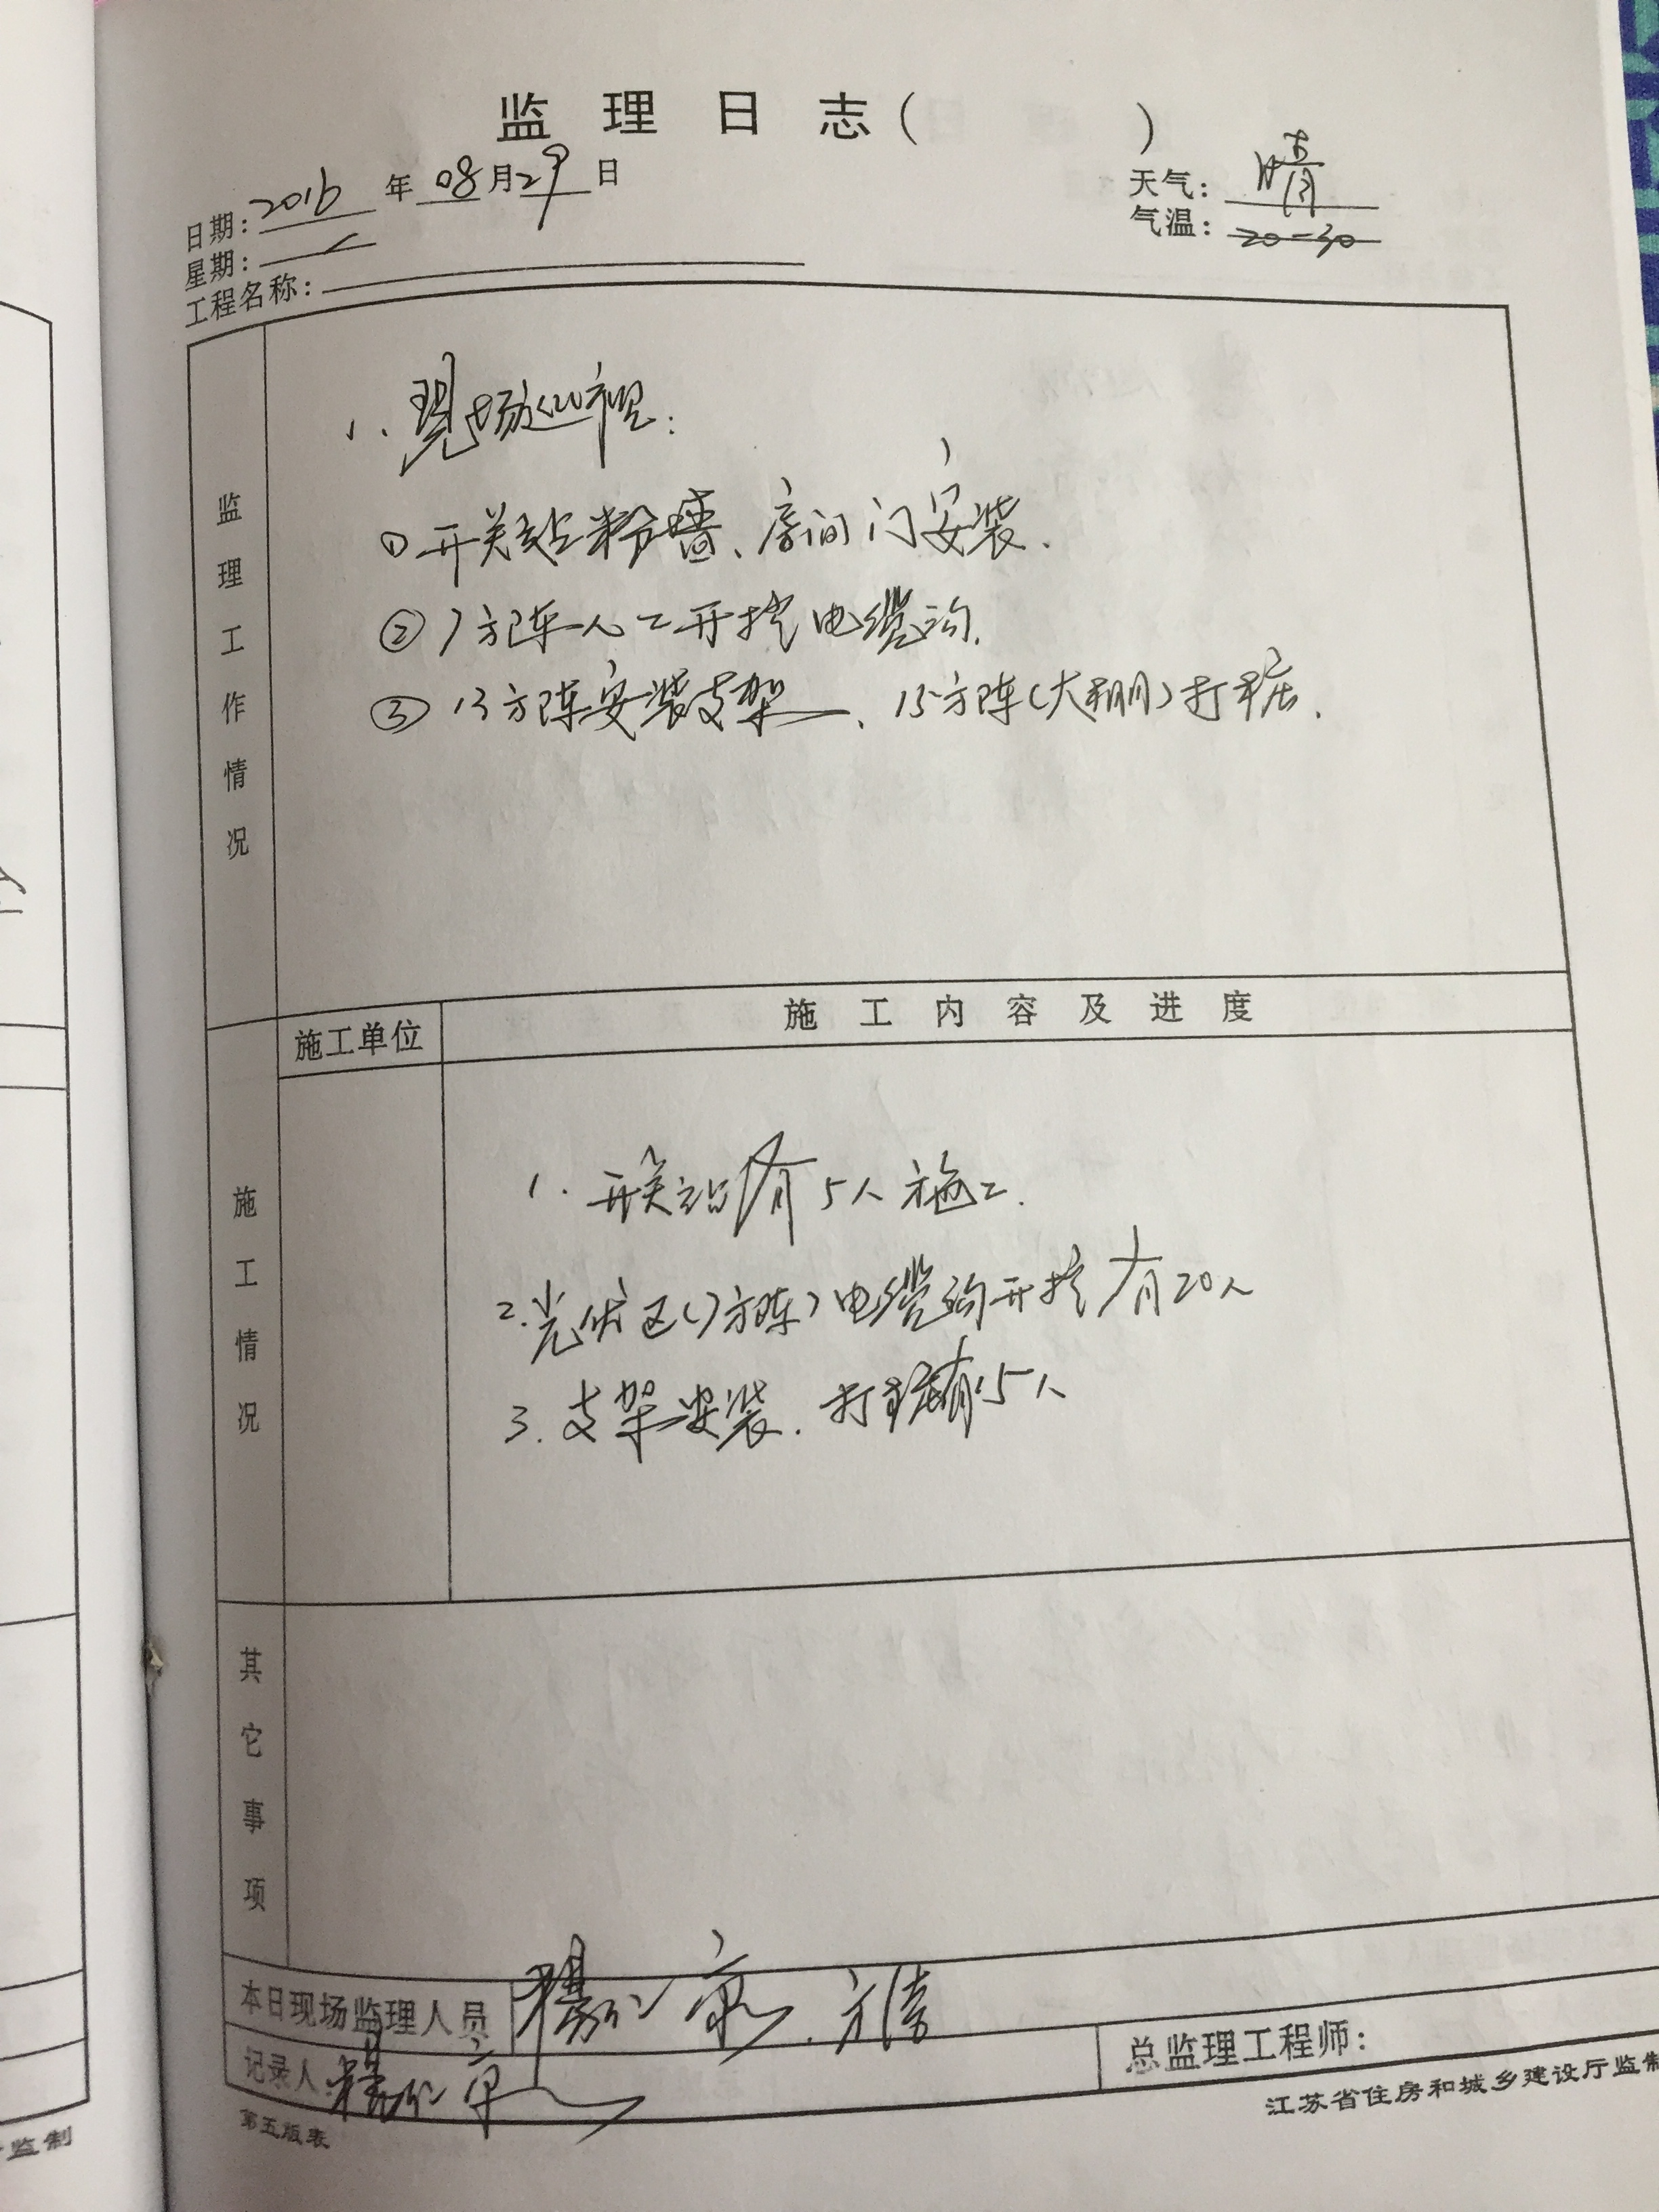 监理日志（ ）
日期：2016年08月29日
天气：晴
星期：一
气温：20-30
工程名称：
监理工作情况
1、现场巡视：
①开关站粉墙、房间门安装.
②7方阵人工开挖电缆沟.
③13方阵安装支架、15方阵(大棚)打桩.
施工单位
施工内容及进度
施工情况
1. 开关站有5人施工.
2.光伏区(7方阵)电缆沟开挖有20人
3.支架安装.打桩有15人
其它事项
本日现场监理人员
总监理工程师：
记录人：
第五版表
江苏省住房和城乡建设厅监制
监制